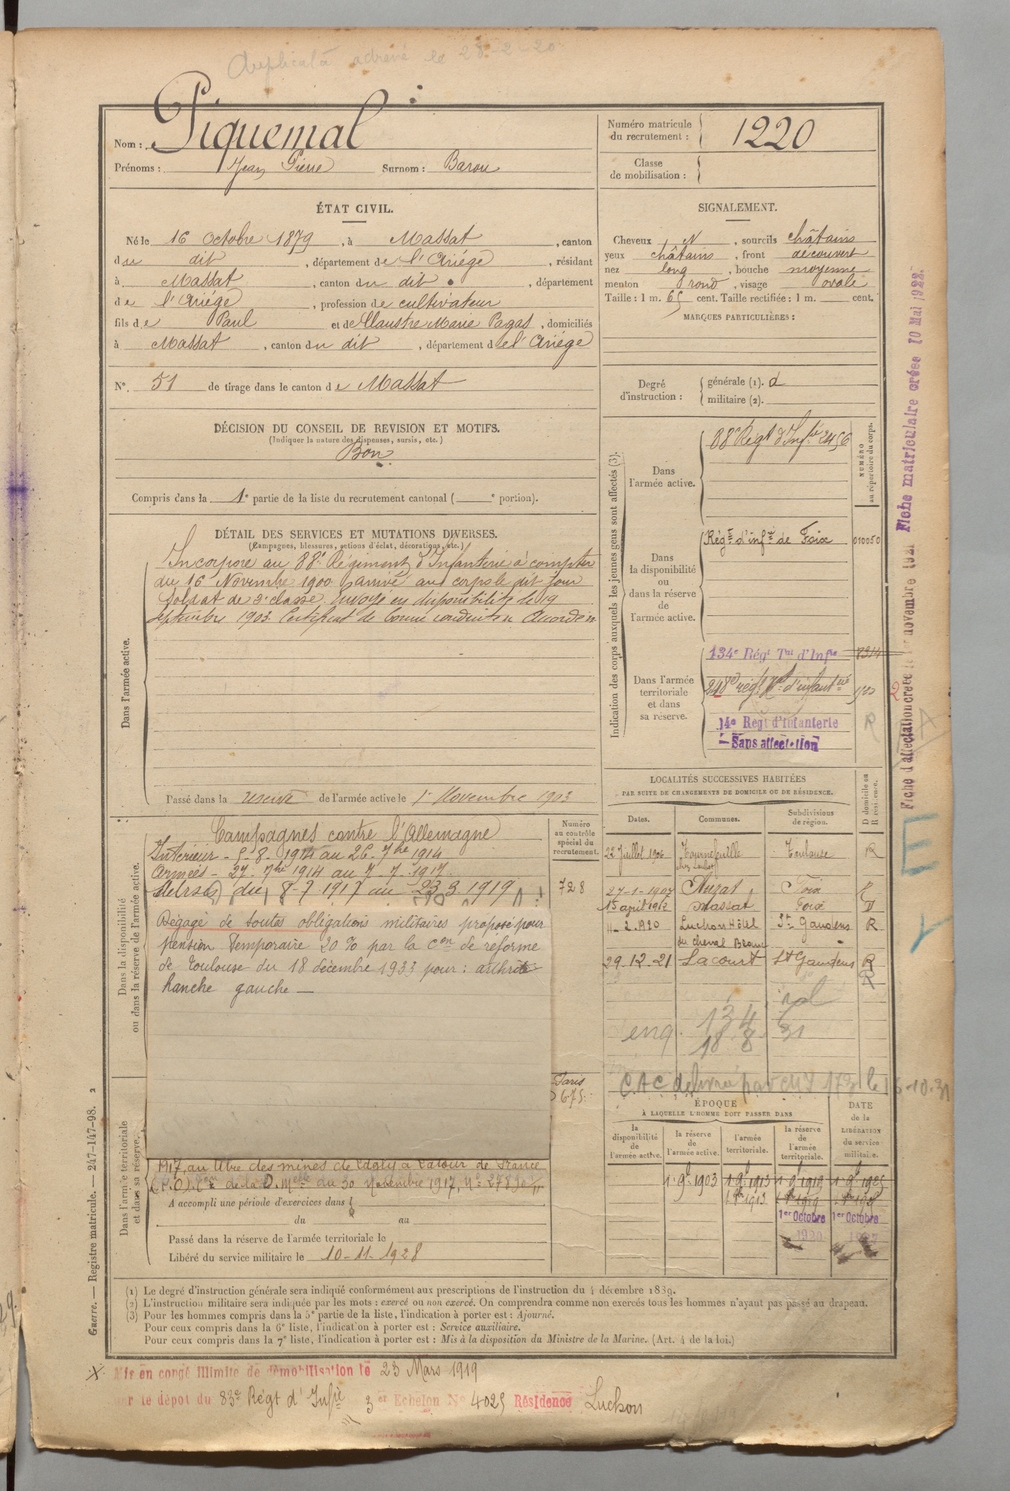 Duplicata adressé le 28-2-20
Nom : Piquemal
Prénoms : Jean Pierre Surnom : Barou
Numéro matricule du recrutement : 1220
Classe de mobilisation :
ÉTAT CIVIL.
Né le 16 Octobre 1879, à Massat, canton
du dit, département de l'Ariège, résidant
à Massat, canton du dit, département
de l'Ariège, profession de cultivateur
fils de Paul et de Claustre Marie Pagas, domiciliés
à Massat, canton du dit, département de l'Ariège
N° 51 de tirage dans le canton de Massat
SIGNALEMENT.
Cheveux N, sourcils châtains
yeux châtains, front découvert
nez long, bouche moyenne
menton rond, visage ovale
Taille : 1 m. 65 cent. Taille rectifiée : 1 m. cent.
MARQUES PARTICULIÈRES :
Degré d'instruction : générale (1). 2
militaire (2).
DÉCISION DU CONSEIL DE REVISION ET MOTIFS.
(Indiquer la nature des dispenses, sursis, etc.)
Bon
Compris dans la 1e partie de la liste du recrutement cantonal ( e portion).
DÉTAIL DES SERVICES ET MUTATIONS DIVERSES.
(Campagnes, blessures, actions d'éclat, décorations, etc.)
Dans l'armée active.
Incorporé au 88e Régiment d'Infanterie à compter
du 16 Novembre 1900. arrivé au corps le dit jour
Soldat de 2e classe. Envoyé en disponibilité le 19
septembre 1903. Certificat de bonne conduite Accordé
Passé dans la réserve de l'armée active le 1er Novembre 1903
Indication des corps auxquels les jeunes gens sont affectés (3).
NUMÉRO au répertoire du corps.
Dans l'armée active.
88e Régt d'Infie 2456
Dans la disponibilité ou dans la réserve de l'armée active.
Régt d'infie de Foix 010050
Dans l'armée territoriale et dans sa réserve.
134e Régt Tal d'Infie
14e Regt d'Infanterie
Sans affectation
R
Fiche d'affectation créée le 1er novembre 1921 Fiche matriculaire créée 10 Mai 1922.
LOCALITÉS SUCCESSIVES HABITÉES
PAR SUITE DE CHANGEMENTS DE DOMICILE OU DE RÉSIDENCE.
Dates. Communes. Subdivisions de région. D domicile ou R résidence.
Juillet Tournefeuille Toulouse R
27-1-1907 Foix
15 avril 1912 Massat Foix D
2.1920 Luchon Hôtel du cheval Blanc St Gaudens R
29.12.21 Lacourt St Gaudens R
Dans la disponibilité ou dans la réserve de l'armée active.
Campagnes contre l'Allemagne
Intérieur - 5-8-1914 au 26 7bre 1914
Armées - 27 7bre 1914 au 7.7.1917
du 8-7 1917 au 23 3 1919
Numéro au contrôle spécial du recrutement.
728
Dégagé de toutes obligations militaires proposé pour
pension temporaire 20 % par la Con de réforme
de Toulouse du 18 décembre 1933 pour : arthrite
hanche gauche —
Paris
675
ÉPOQUE
À LAQUELLE L'HOMME DOIT PASSER DANS
DATE de la LIBÉRATION du service militaire.
la disponibilité de l'armée active. la réserve de l'armée active. l'armée territoriale. la réserve de l'armée territoriale.
1 9bre 1903 1 9bre 1913 1 9bre 1919 1 9bre 1925
1er Octobre 1er Octobre
Dans l'armée territoriale et dans sa réserve.
1917, au titre des mines de Cagny à
du 30 Novembre 1917, N°
A accompli une période d'exercices dans
du au
Passé dans la réserve de l'armée territoriale le
Libéré du service militaire le 10-11-1928
(1) Le degré d'instruction générale sera indiqué conformément aux prescriptions de l'instruction du 4 décembre 1889.
(2) L'instruction militaire sera indiquée par les mots : exercé ou non exercé. On comprendra comme non exercés tous les hommes n'ayant pas passé au drapeau.
(3) Pour les hommes compris dans la 5e partie de la liste, l'indication à porter est : Ajourné.
Pour ceux compris dans la 6e liste, l'indication à porter est : Service auxiliaire.
Pour ceux compris dans la 7e liste, l'indication à porter est : Mis à la disposition du Ministre de la Marine. (Art. 4 de la loi.)
Guerre. — Registre matricule. — 247-147-98. 2
Mis en congé illimité de démobilisation le 23 Mars 1919
le dépôt du 83e Régt d'Infie 3e Echelon No 4025 Résidence Luchon